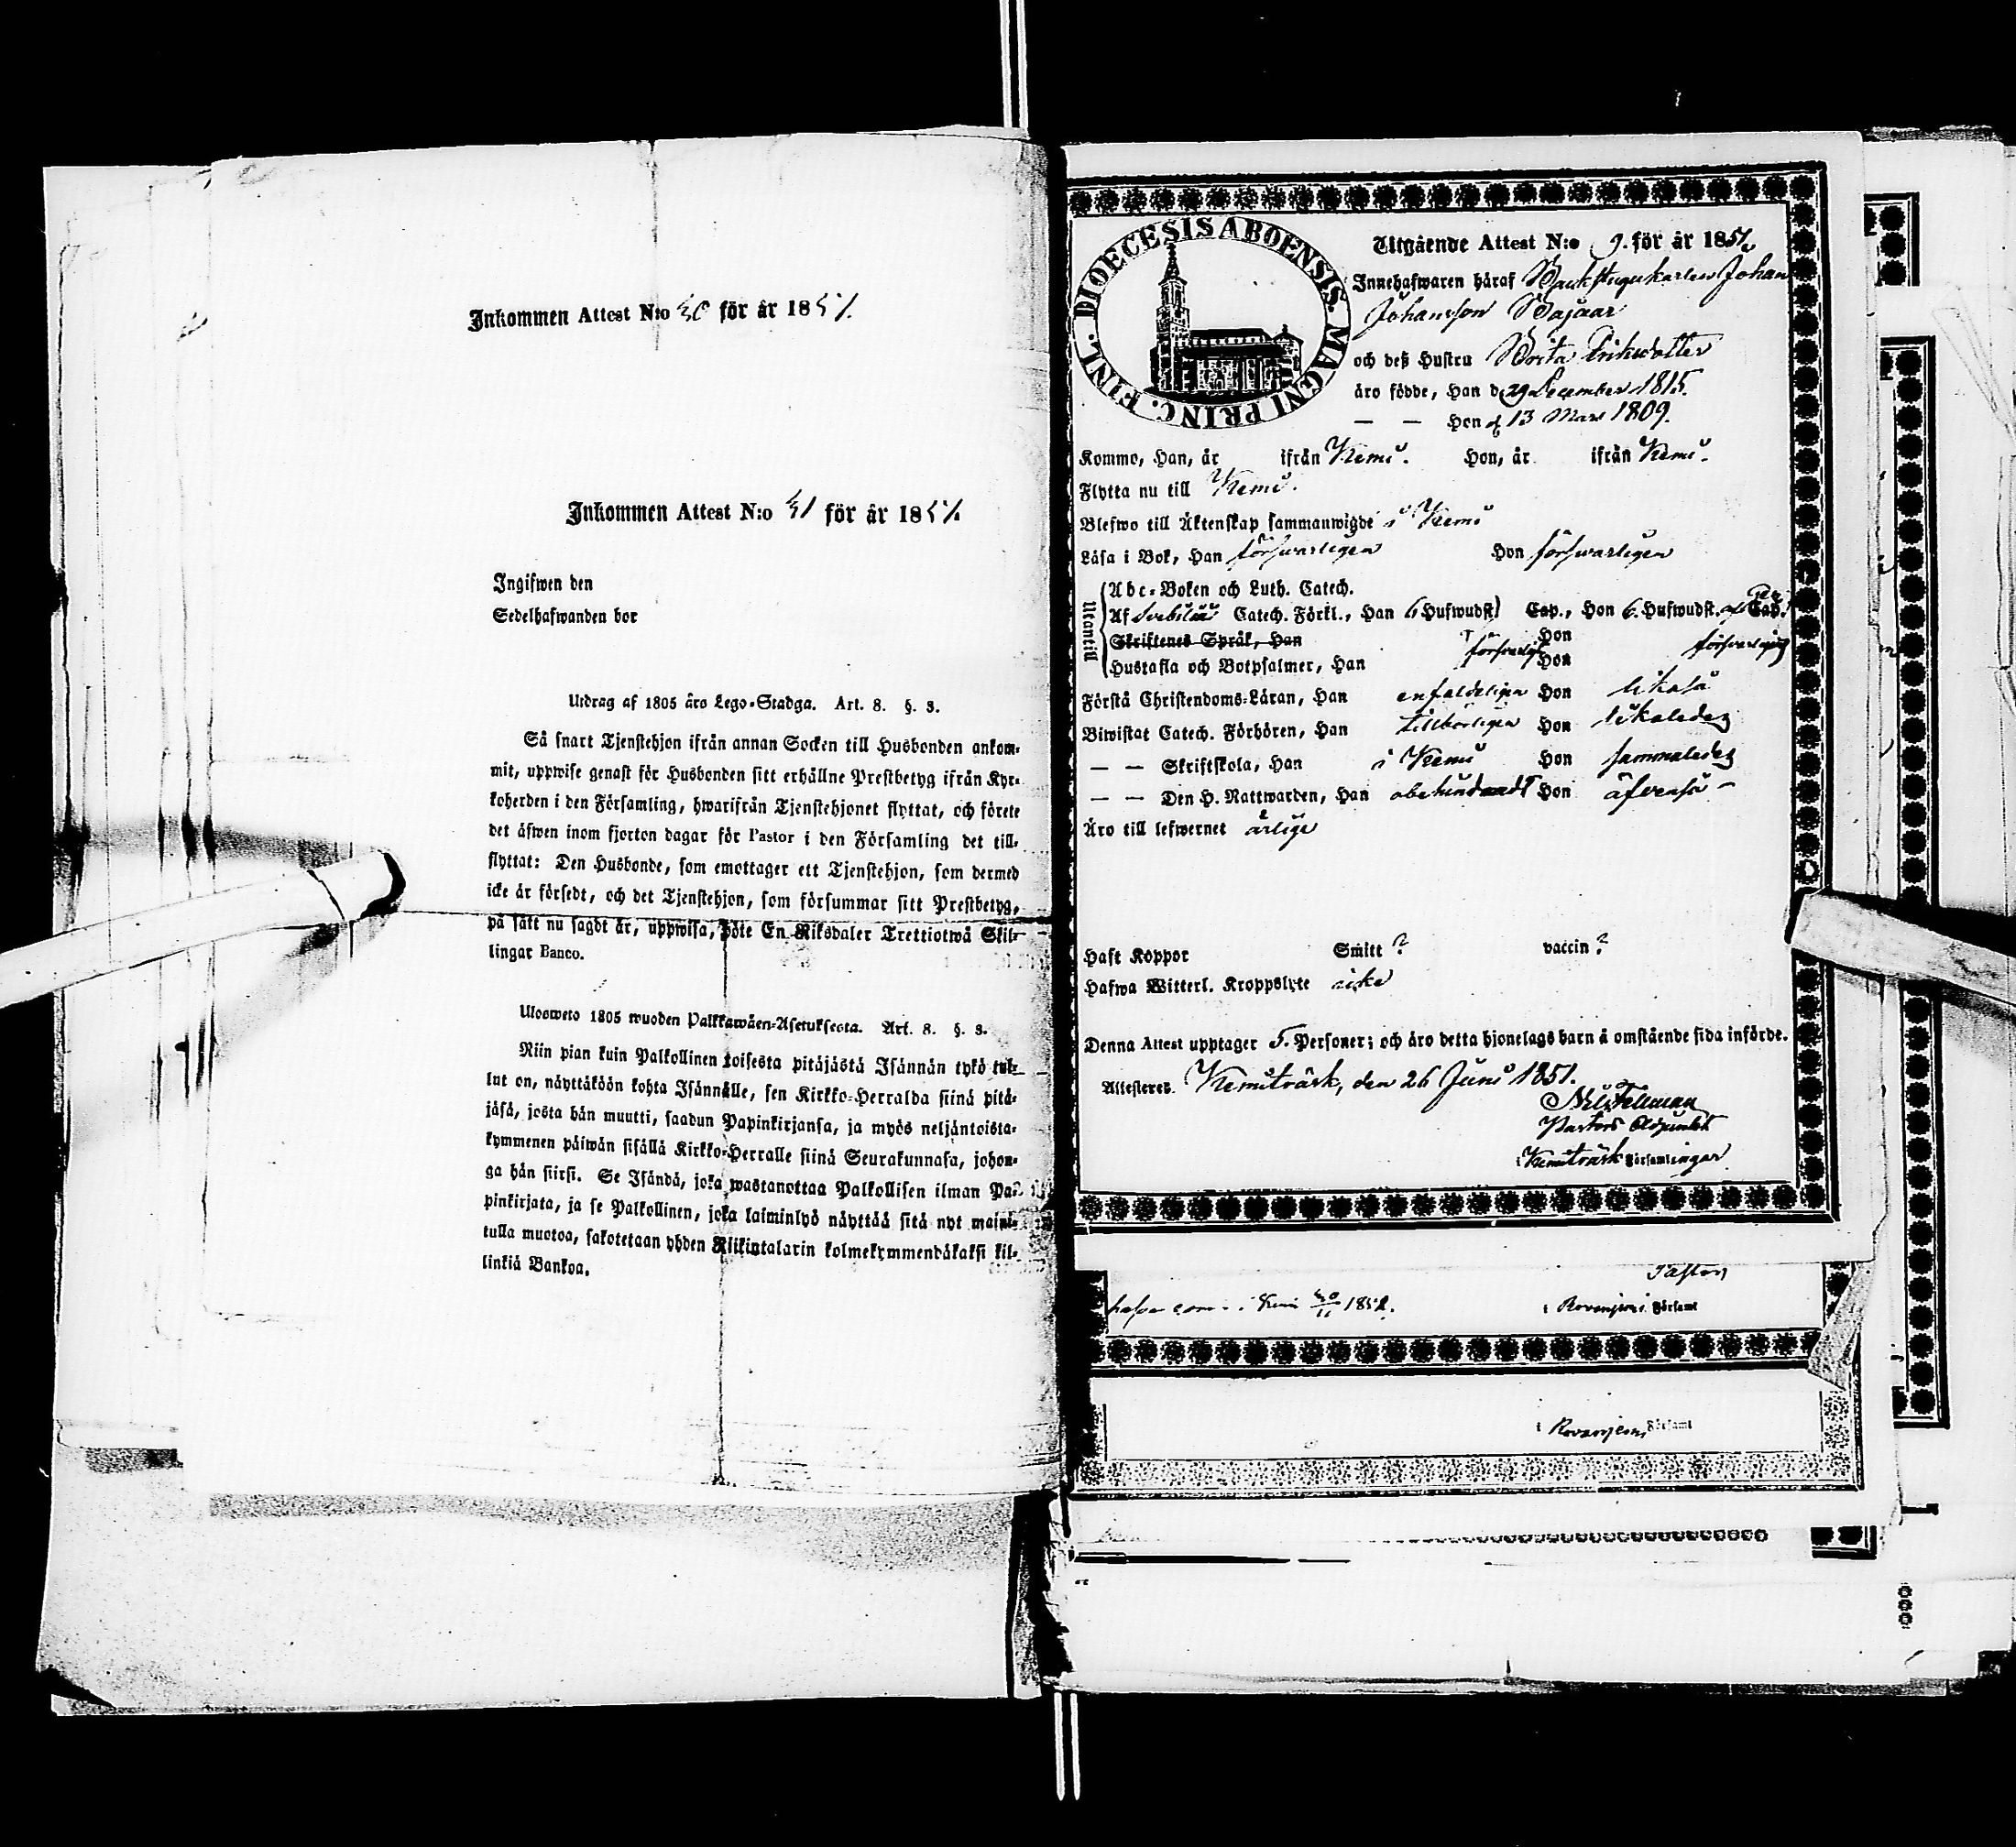 Inkommen Attest N:o 30 för år 1851.
Inkommen Attest N:o 31 för år 1851.
Ingifwen den
Sedelhafwanden bor
Utdrag af 1805 års Lego-Stadga. Art. 8. §. 3.
Så snart Tjenstehjon ifrån annan Socken till Husbonden ankom-
mit, uppwise genast för Husbonden sitt erhållne Prestbetyg ifrån Kyr-
koherden i den Församling, hwarifrån Tjenstehjonet flyttat, och förete
det äfwen inom fjorton dagar för Pastor i den Församling det till-
flyttat: Den Husbonde, som emottager ett Tjenstehjon, som dermed
icke är försedt, och det Tjenstehjon, som försummar sitt Prestbetyg,
på sätt nu sagdt är, uppwisa, böte En Riksdaler Trettiotwå Skil-
lingar Banco.
Ulosweto 1805 wuoden Palkkawäen-Asetuksesta. Art. 8. §. 3.
Niin pian kuin Palkollinen toisesta pitäjästä Isännän tykö tul-
lut on, näyttäköön kohta Isännälle, sen Kirkko-Herralda siinä pitä-
jäsä, josta hän muutti, saadun Papinkirjansa, ja myös neljäntoista-
kymmenen päiwän sisällä Kirkko-Herralle siinä Seurakunnasa, johon-
ga hän siirsi. Se Isändä, joka wastanottaa Palkollisen ilman Pa-
pinkirjata, ja se Palkollinen, joka laiminlyö näyttää sitä nyt maini-
tulla muotoa, sakotetaan yhden Riikintalarin kolmekymmendäkaksi kil-
linkiä Bankoa.
DIOECESIS ABOENSIS. MAGNI PRINC. FINL.
Utgående Attest N:o 9. för år 1851.
Innehafwaren häraf Backstugukarlen Johan
Johansson Bajaar
och deß Hustru Brita Eriksdotter
äro födde, Han d. 29 December 1815.
— — Hon d. 13 Mars 1809.
Kommo, Han, år ifrån Kemi. Hon, år ifrån Kemi.
Flytta nu till Kemi.
Blefwo till Äktenskap sammanwigde i Kemi
Läsa i Bok, Han försvarligen Hon försvarligen
Utantill
Abc-Boken och Luth. Catech.
Af Svebilii Catech. Förkl., Han 6 Hufwudst. Cap., Hon 6. Hufwudst. Cap.
Skriftenes Språk, Han Hon
Hustafla och Botpsalmer, Han försvarligt Hon försvarligt
Förstå Christendoms-Läran, Han enfaldeligen Hon likaså
Biwistat Catech. Förhören, Han tillbörligen Hon likaledes
— — Skriftskola, Han i Kemi Hon sammaledes
— — Den H. Nattwarden, Han obehindradt Hon äfvenså
Äro till lefwernet ärlige
Haft Koppor Smitt ? vaccin ?
Hafwa Witterl. Kroppslyte icke
Denna Attest upptager 5. Personer; och äro detta hjonelags barn å omstående sida införde.
Attesteres. Kemiträsk, den 26 Juni 1851.
Nils Fellman
Pastors Adjunkt
i Kemiträsk Församlingar
Pastor
i Kemi 30/11 1852.
i Rovaniemi Församl
i Rovaniemi Församl